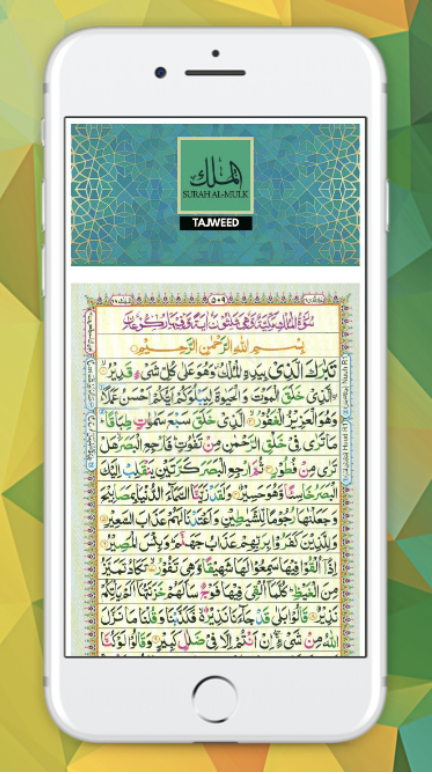 الملك
SURAH AL-MULK
TAJWEED
۵۰۹
بِسْمِ اللهِ الرَّحْمٰنِ الرَّحِیْمِ
تَبٰرَكَ الَّذِیْ بِیَدِهِ الْمُلْكُ وَهُوَ عَلٰی كُلِّ شَیْءٍ قَدِیْرُ
الَّذِیْ خَلَقَ الْمَوْتَ وَ الْحَیٰوةَ لِیَبْلُوَكُمْ اَیُّكُمْ اَحْسَنُ عَمَلًا
وَهُوَ الْعَزِیْزُ الْغَفُوْرُ الَّذِیْ خَلَقَ سَبْعَ سَمٰوٰتٍ طِبَاقًا
مَا تَرٰی فِیْ خَلْقِ الرَّحْمٰنِ مِنْ تَفٰوُتٍ فَارْجِعِ الْبَصَرَ هَلْ
تَرٰی مِنْ فُطُوْرٍ ثُمَّ ارْجِعِ الْبَصَرَ كَرَّتَیْنِ یَنْقَلِبْ اِلَیْكَ
الْبَصَرُ خَاسِئًا وَّهُوَ حَسِیْرٌ وَلَقَدْ زَیَّنَّا السَّمَآءَ الدُّنْیَا بِمَصَابِیْحَ
وَجَعَلْنٰهَا رُجُوْمًا لِّلشَّیٰطِیْنِ وَاَعْتَدْنَا لَهُمْ عَذَابَ السَّعِیْرِ
وَلِلَّذِیْنَ كَفَرُوْا بِرَبِّهِمْ عَذَابُ جَهَنَّمَ وَبِئْسَ الْمَصِیْرُ
اِذَآ اُلْقُوْا فِیْهَا سَمِعُوْا لَهَا شَهِیْقًا وَّهِیَ تَفُوْرُ تَكَادُ تَمَیَّزُ
مِنَ الْغَیْظِ كُلَّمَآ اُلْقِیَ فِیْهَا فَوْجٌ سَاَلَهُمْ خَزَنَتُهَآ اَلَمْ یَاْتِكُمْ
نَذِیْرٌ قَالُوْا بَلٰی قَدْ جَآءَنَا نَذِیْرٌ فَكَذَّبْنَا وَقُلْنَا مَا نَزَّلَ
اللهُ مِنْ شَیْءٍ اِنْ اَنْتُمْ اِلَّا فِیْ ضَلٰلٍ كَبِیْرٍ وَقَالُوْا لَوْ كُنَّا